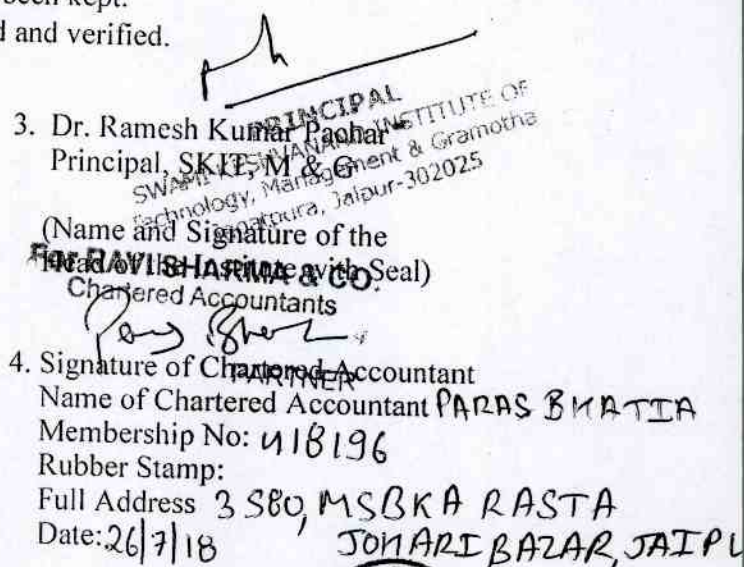 been kept.
and verified.
3. Dr. Ramesh Kumar Pachar
Principal, SKIT, M & G
PRINCIPAL
SWAMI KESHVANAND INSTITUTE OF
Technology, Management & Gramotha
Jaipur-302025
(Name and Signature of the
Head of the Institute with Seal)
For RAVI SHARMA & CO.
Chartered Accountants
PARTNER
4. Signature of Chartered Accountant
Name of Chartered Accountant PARAS BHATIA
Membership No: 418196
Rubber Stamp:
Full Address 3580, MSBKA RASTA
Date: 26/7/18 JOHARI BAZAR, JAIPU